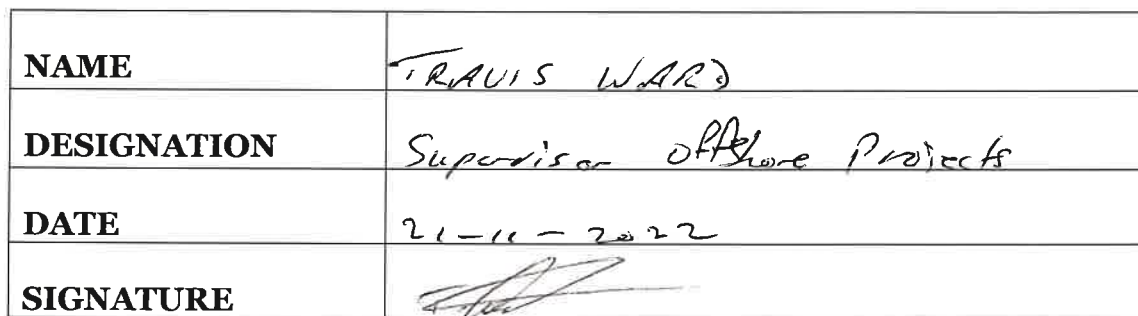 NAME TRAVIS WARD
DESIGNATION Supervisor Offshore Projects
DATE 21-11-2022
SIGNATURE